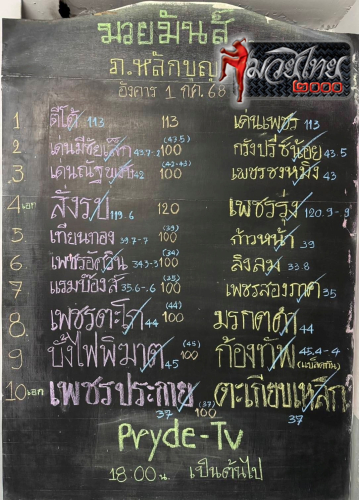 มวยมันส์
ภ.หลักบุญ
มวยไทย
๒๐๐๐
อังคาร 1 กค. 68
1 ตีโต้ 113 113 เดนเพชร 113
2 เดนมีชัยเล็ก 43.7-2 (43.5) 100 กรังปรีซ์น้อย 43.5
3 42 (42-43) 100 เพชรชงหมิง 43
4 เอก สั่งรบ 119.6 120 เพชรรุ่ง 120.9-9
5 เทียนทอง 39.7-7 (39) 100 ก้าวหน้า 39
6 34.3-3 (34) 100 ลิงลม 33.8
7 แรมบ้องส์ 35.6-6 (35) 100 เพชรสองภาค 35
8. เพชรตะโก 44 (44) 100 มรกตดำ 44
9 บั้งไฟพิฆาต 45 (45) 100 ก้องทัพ 45.4-4
10 เอก เพชรประกาย 37 (37) 100 ตะเกียบเหล็ก 37
Pryde-Tv
18:00 น. เป็นต้นไป